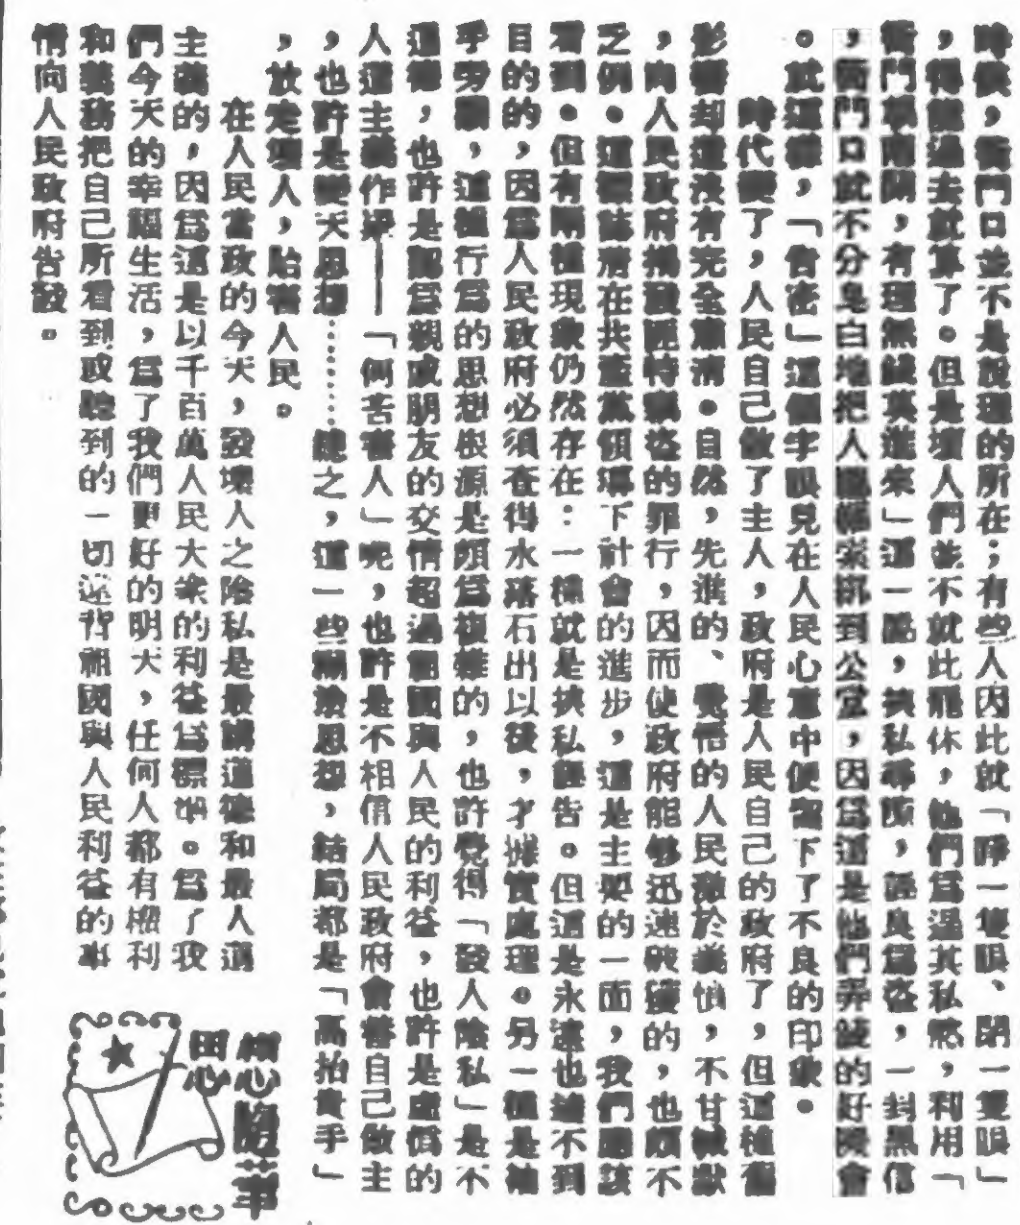 時候，衙門口並不是說理的所在；有些人因此就「睜一隻眼、閉一隻眼」
，得能過去就算了。但是壞人們並不就此罷休，他們爲逞其私慾，利用「
衙門朝南開，有理無錢莫進來」這一點，挾私尋隙，誣良爲盜，一封黑信
，衙門口就不分皂白地把人抓到公堂，因爲這是他們弄錢的好機會
。就這樣，「告密」這個字眼兒在人民心意中便留下了不良的印象。
時代變了，人民自己做了主人，政府是人民自己的政府了，但這種舊
影響却還沒有完全肅清。自然，先進的、覺悟的人民激於義憤，不甘緘默
，向人民政府揭發匪特竊盜的罪行，因而使政府能够迅速破獲的，也頗不
乏例。這標誌着在共產黨領導下社會的進步，這是主要的一面，我們應該
看到。但有兩種現象仍然存在：一種就是挾私誣告。但這是永遠也達不到
目的的，因爲人民政府必須查得水落石出以後，才據實處理。另一種是袖
手旁觀，這種行爲的思想根源是頗爲複雜的，也許覺得「發人陰私」是不
道德，也許是認爲親戚朋友的交情超過祖國與人民的利益，也許是虛僞的
人道主義作祟──「何苦害人」呢，也許是不相信人民政府會替自己做主
，也許是變天思想……總之，這一些糊塗思想，結局都是「高抬貴手」
，放走壞人，貽害人民。
在人民當政的今天，發壞人之陰私是最講道德和最人道
主義的，因爲這是以千百萬人民大衆的利益爲標準。爲了我
們今天的幸福生活，爲了我們更好的明天，任何人都有權利
和義務把自己所看到或聽到的一切違背祖國與人民利益的事
情向人民政府告發。
細心隨筆
田心